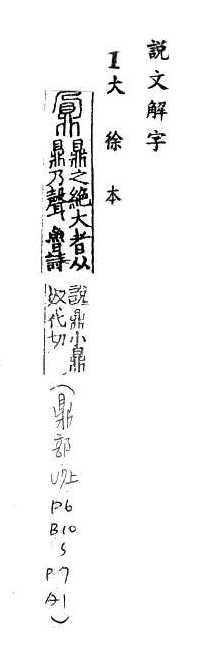 説文解字
1大徐本
鼐鼎之絶大者从
鼎乃聲魯詩
説鼐小鼎
奴代切
(鼎部
U7上
P6
B10
S
P.7
A1)